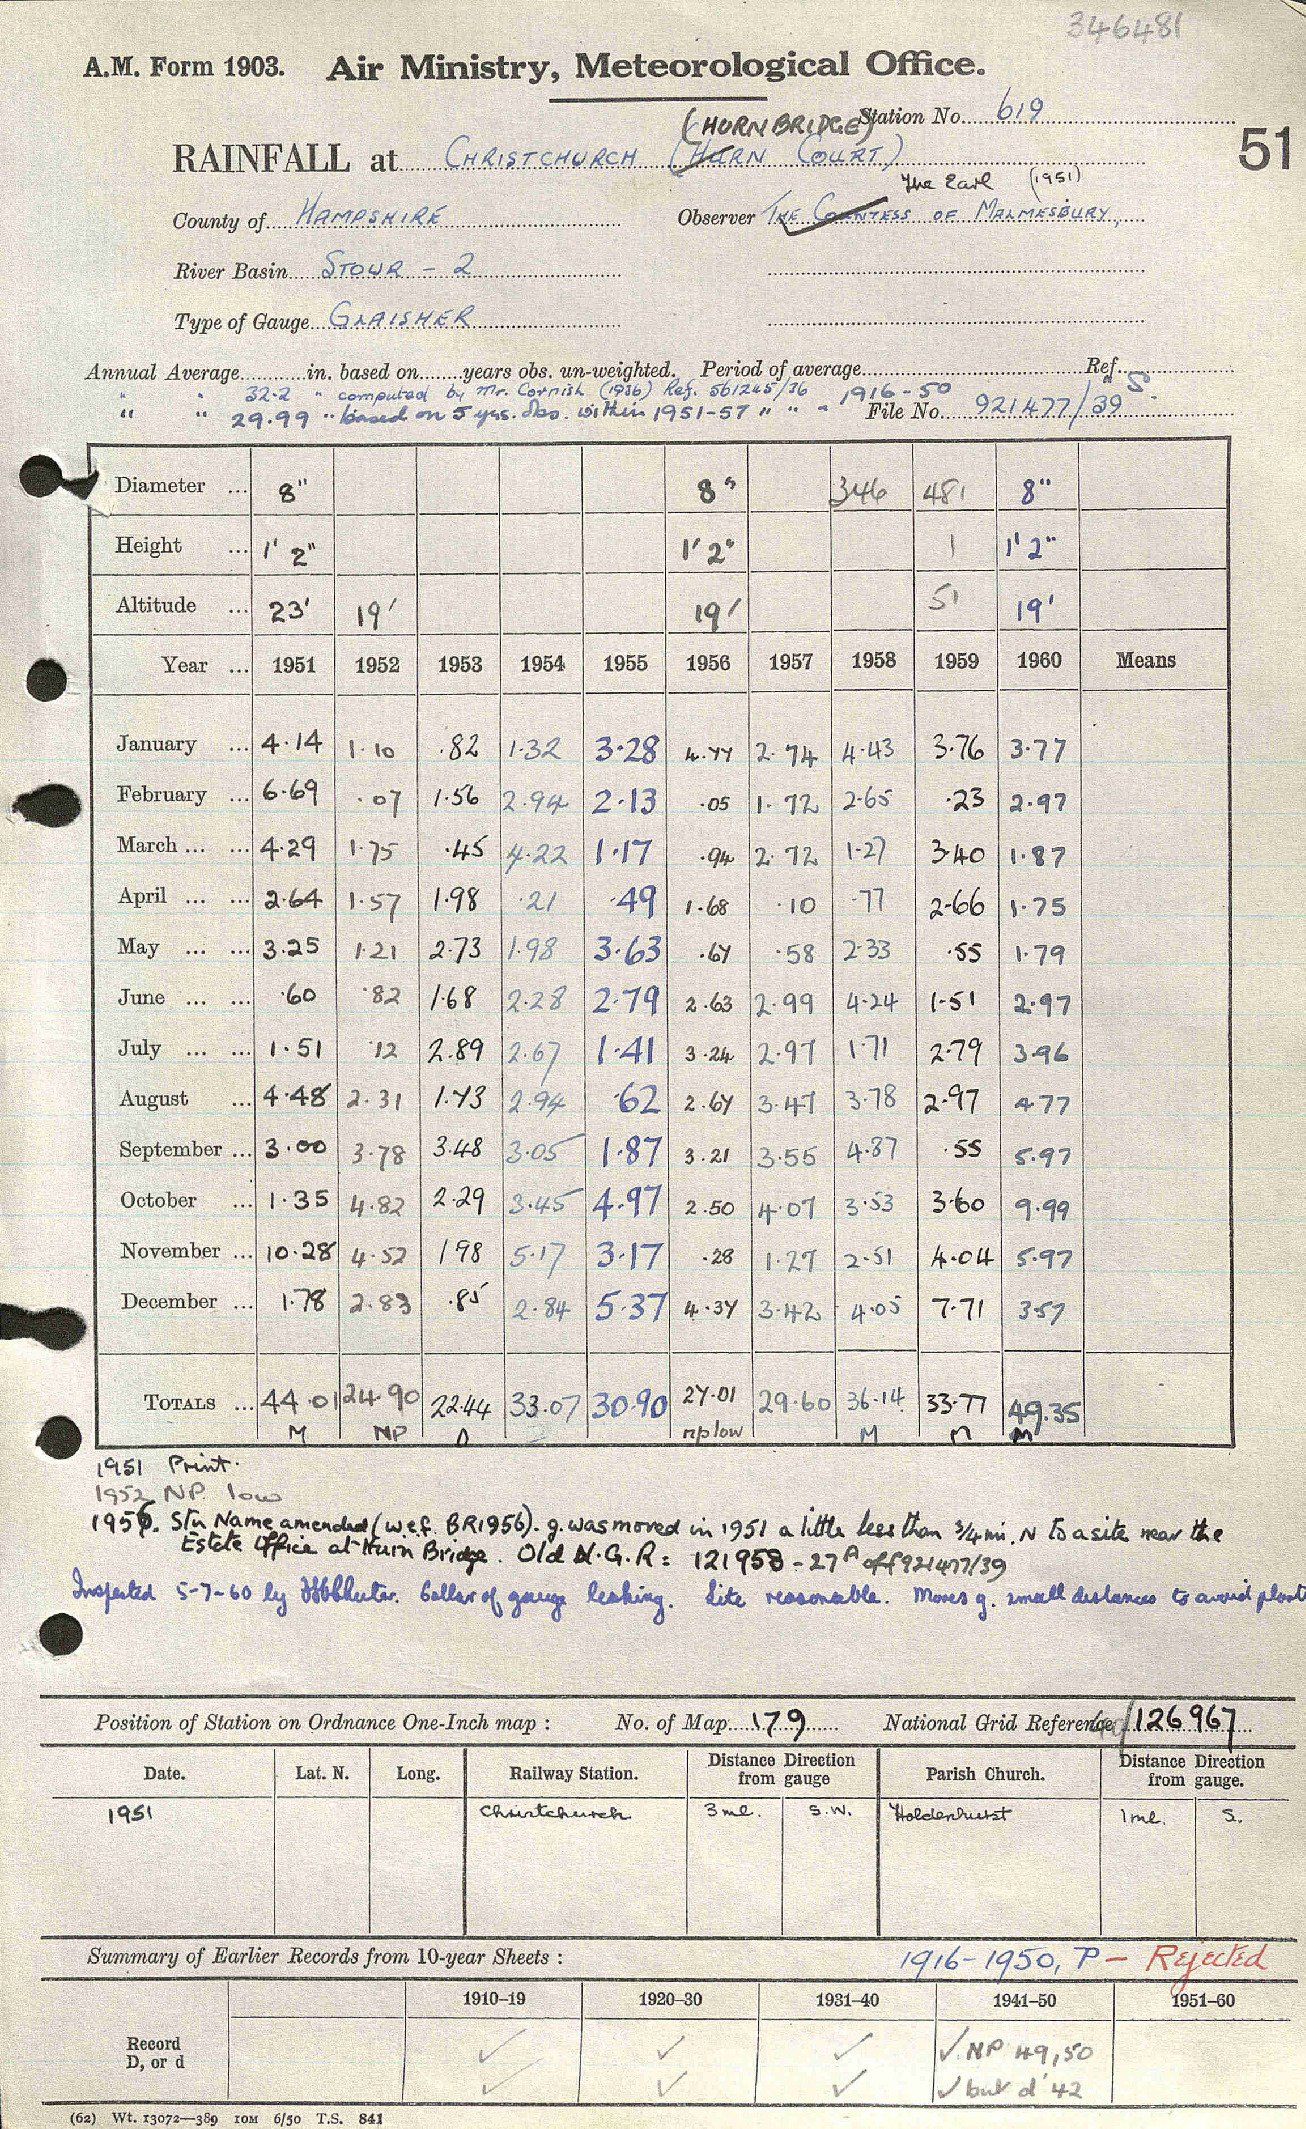 346481
A.M. Form 1903. Air Ministry, Meteorological Office.
(HURNBRIDGE) Station No. 619
51
RAINFALL at CHRISTCHURCH (HURN COURT)
The Earl (1951)
County of HAMPSHIRE Observer THE COUNTESS OF MALMESBURY,
River Basin STOUR – 2
Type of Gauge GLAISHER
Annual Average in. based on years obs. un-weighted. Period of average Ref.
" " 32.2 " computed by Mr. Cornish (1936) Ref. 561245/36 1916-50 " S.
" " 29.99 " based on 5 yrs. obs. within 1951-57 " " " File No. 921477/39
Diameter ... 8" 8" 346 481 8"
Height ... 1' 2" 1' 2" 1 1' 2"
Altitude ... 23' 19' 19' 51 19'
Year ... 1951 1952 1953 1954 1955 1956 1957 1958 1959 1960 Means
January ... 4.14 1.10 .82 1.32 3.28 4.77 2.74 4.43 3.76 3.77
February ... 6.69 .07 1.56 2.94 2.13 .05 1.72 2.65 .23 2.97
March ... ... 4.29 1.75 .45 4.22 1.17 .94 2.72 1.27 3.40 1.87
April ... ... 2.64 1.57 1.98 .21 .49 1.68 .10 .77 2.66 1.75
May ... ... 3.25 1.21 2.73 1.98 3.63 .67 .58 2.33 .55 1.79
June ... ... .60 .82 1.68 2.28 2.79 2.63 2.99 4.24 1.51 2.97
July ... ... 1.51 .12 2.89 2.67 1.41 3.24 2.97 1.71 2.79 3.96
August ... 4.48 2.31 1.73 2.94 .62 2.67 3.47 3.78 2.97 4.77
September ... 3.00 3.78 3.48 3.05 1.87 3.21 3.55 4.87 .55 5.97
October ... 1.35 4.82 2.29 3.45 4.97 2.50 4.07 3.53 3.60 9.99
November ... 10.28 4.52 1.98 5.17 3.17 .28 1.27 2.51 4.04 5.97
December ... 1.78 2.83 .85 2.84 5.37 4.37 3.42 4.05 7.71 3.57
TOTALS ... 44.01 24.90 22.44 33.07 30.90 27.01 29.60 36.14 33.77 49.35
M NP np low M M M
1951 Print.
1952 NP. low
1956. Stn Name amended (w.e.f. BR1956). g. was moved in 1951 a little less than 3/4 mi. N to a site near the
Estate Office at Hurn Bridge. Old N.G.R: 121958 - 27A off 921477/39
Inspected 5-7-60 by Collar of gauge leaking. Site reasonable. Moves g. small distances to avoid plants
Position of Station on Ordnance One-Inch map : No. of Map 179 National Grid Reference 40/126967
Date. Lat. N. Long. Railway Station. Distance Direction from gauge Parish Church. Distance Direction from gauge.
1951 Christchurch 3 ml. S.W. Holdenhurst 1 ml. S.
Summary of Earlier Records from 10-year Sheets : 1916-1950, P – Rejected
1910–19 1920–30 1931–40 1941–50 1951–60
Record D, or d ✓ ✓ ✓ ✓ NP 49,50
✓ ✓ ✓ ✓ but d' 42
(62) Wt. 13072—389 10M 6/50 T.S. 841